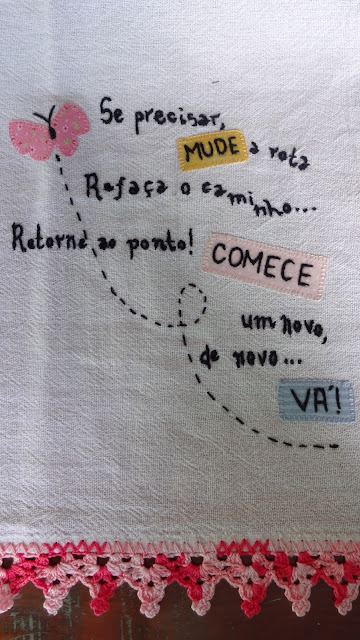 Se precisar,
MUDE a rota
Refaça o caminho...
Retorne ao ponto!
COMECE
um novo,
de novo...
VÁ!